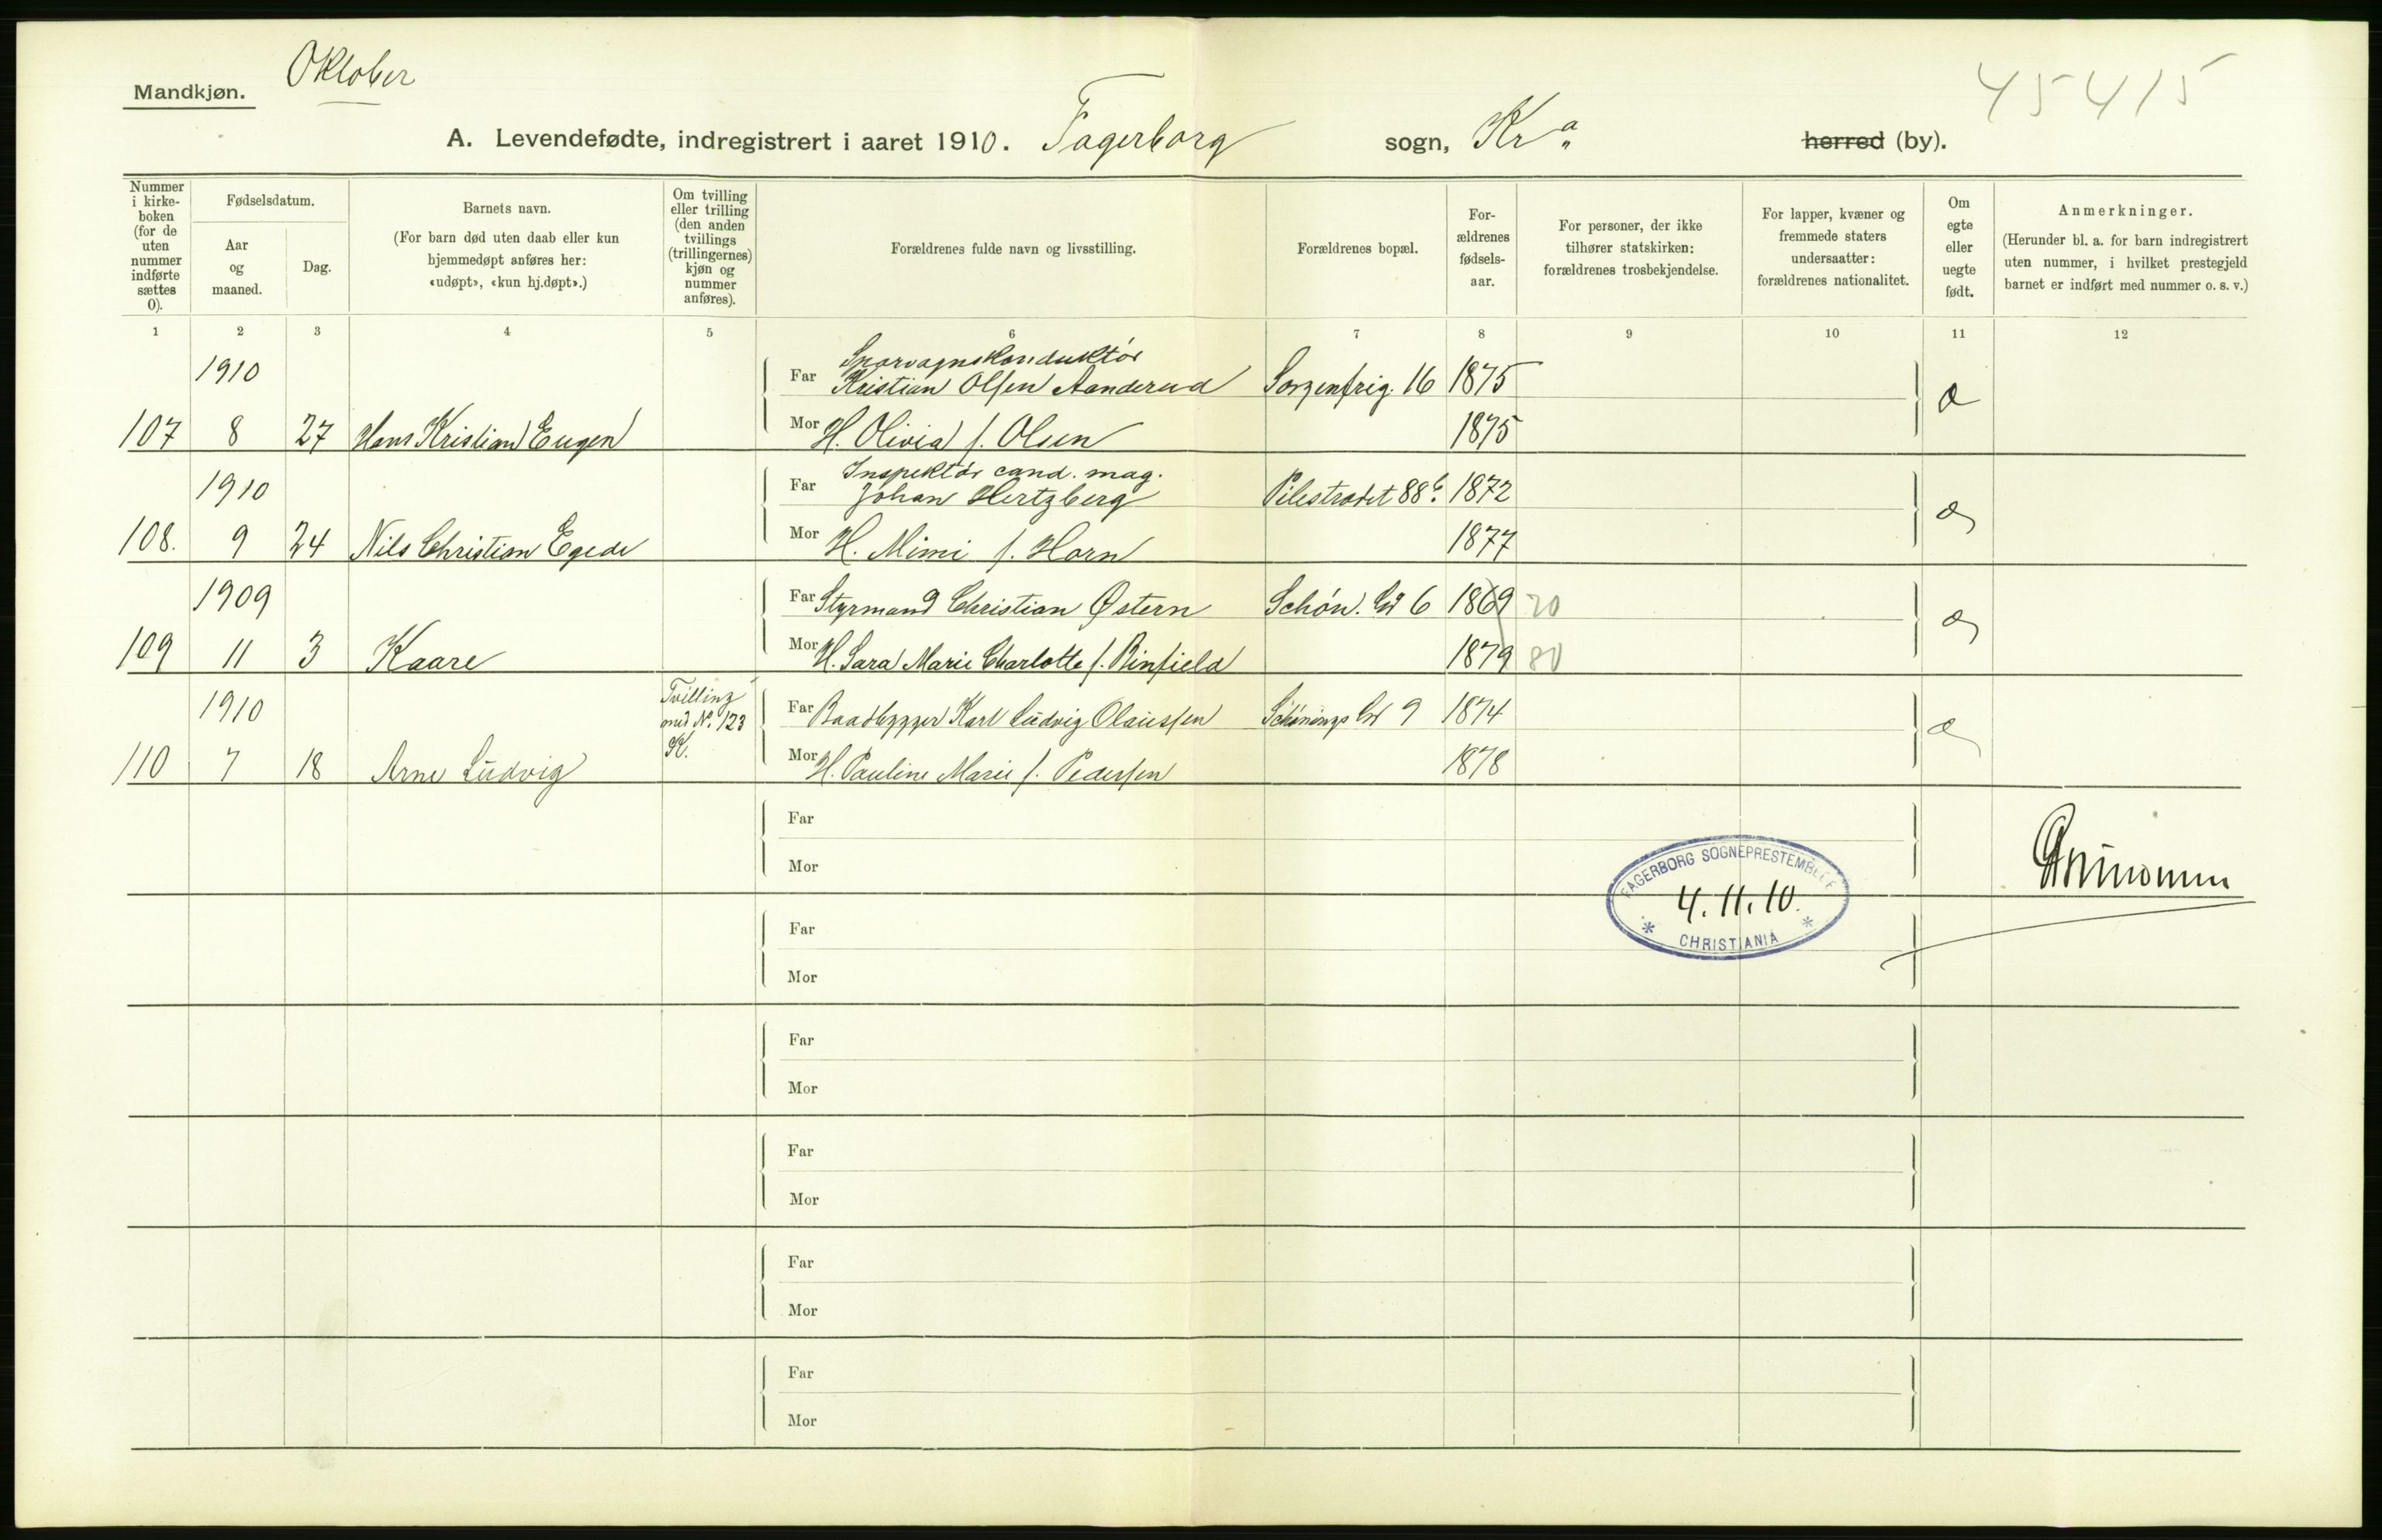 Oktober
45415
Mandkjøn.
A. Levendefødte, indregistrert i aaret 1910. Fagerborg sogn, Kr.a herred (by).
Nummer i kirke-boken (for de uten nummer indførte sættes 0).
Fødselsdatum.
Aar og maaned.
Dag.
Barnets navn.
(For barn død uten daab eller kun hjemmedøpt anføres her: «udøpt», «kun hj.døpt».)
Om tvilling eller trilling (den anden tvillings (trillingernes) kjøn og nummer anføres).
Forældrenes fulde navn og livsstilling.
Forældrenes bopæl.
For-ældrenes fødsels-aar.
For personer, der ikke tilhører statskirken: forældrenes trosbekjendelse.
For lapper, kvæner og fremmede staters undersaatter: forældrenes nationalitet.
Om egte eller uegte født.
Anmerkninger.
(Herunder bl. a. for barn indregistrert uten nummer, i hvilket prestegjeld barnet er indført med nummer o. s. v.)
1 2 3 4 5 6 7 8 9 10 11 12
Sporvognskonduktör
1910 Far Kristian Olsen Aanderud Sorgenfrig. 16 1875 æ
107 8 27 Hans Kristian Eugen Mor H. Olivia f. Olsen 1875
Inspektör cand. mag.
1910 Far Johan Hertzberg Pilestrædet 88b. 1872 æ
108. 9 24 Nils Christian Egede Mor H. Mimi f. Horn 1877
1909 Far Styrmand Christian Østern Schøn. Gd 6 1869 70 æ
109 11 3 Kaare Mor H. Sara Marie Charlotte f. Binfield 1879 80
1910 Tvilling med No. 123 K. Far Baadbygger Karl Ludvig Olaussen Schønings Gd 9 1874 æ
110 7 18 Arne Ludvig Mor H. Pauline Marie f. Pedersen 1878
Far
Mor
FAGERBORG SOGNEPRESTEMBEDE
4.11.10.
* CHRISTIANIA *
Far
Mor
Far
Mor
Far
Mor
Far
Mor
Far
Mor